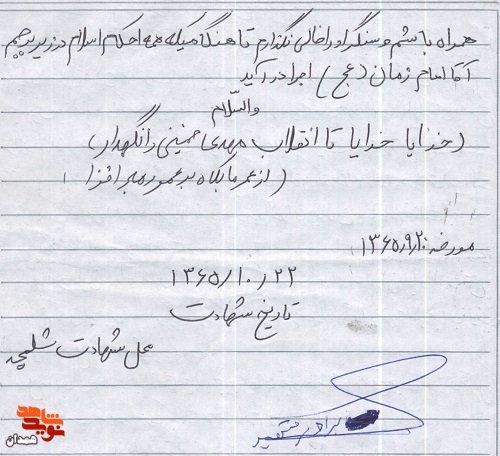 همراه باشم و سنگر او را خالی نگذارم تا هنگامیکه همه احکام اسلام در زیر پرچم
آقا امام زمان (عج) اجرا درآید
والسّلام
(خدایا خدایا تا انقلاب مهدی خمینی را نگهدار)
(از عمر ما بکاه بر عمر رهبر افزا)
مورخه: ۱۳۶۵/۹/۲۰
۱۳۶۵/۱۰/۲۲
تاریخ شهادت
محل شهادت شلمچه
برادر
نوید شاهد
همدان